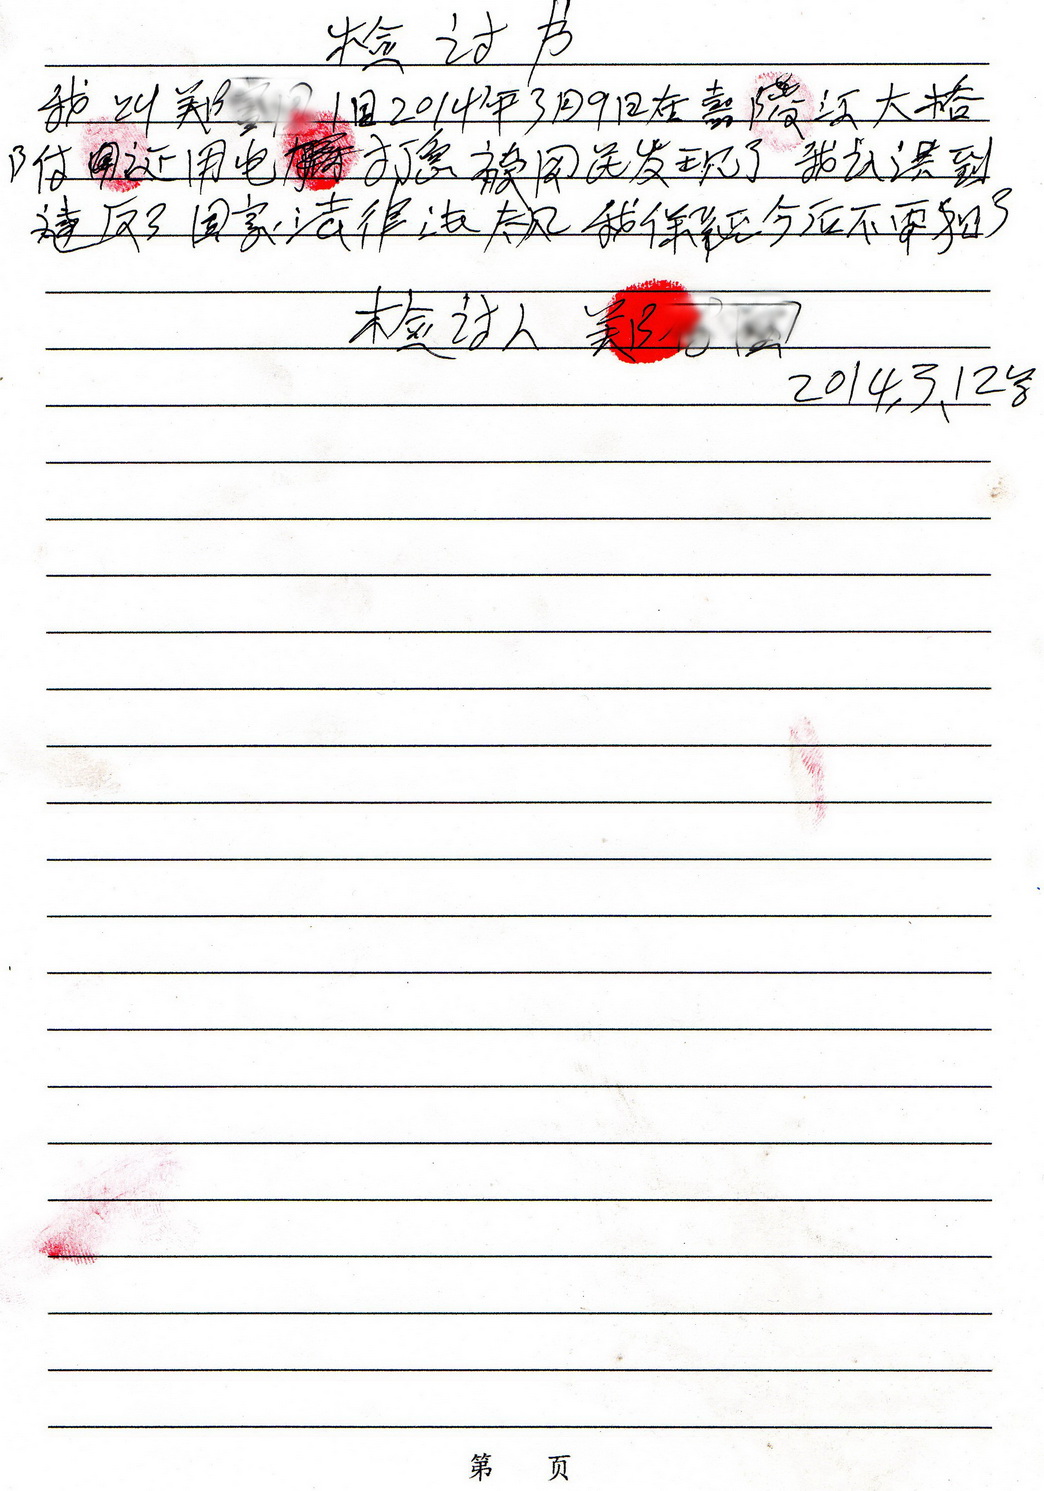 检讨书
我叫郑 1日2014年3月9日在嘉陵江大桥
附近用电 打鱼被闵民发现了 我认识到
违反了国家法律法规 我保证今后不再犯了
检讨人 郑
2014.3.12号
第 页